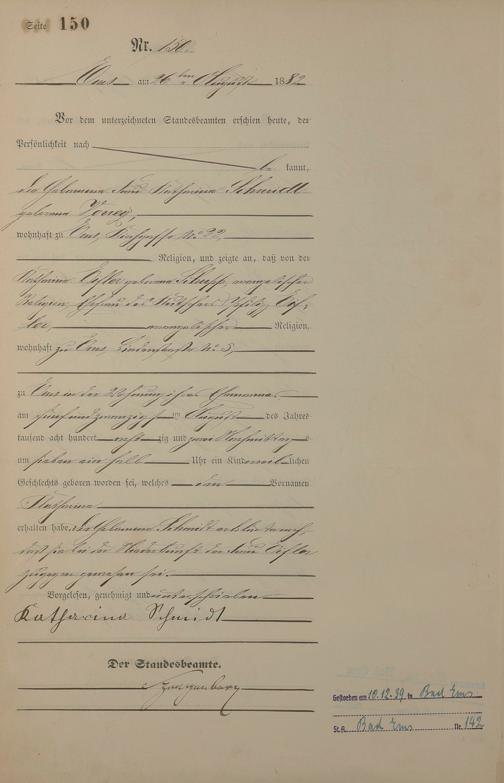 Seite 150
Nr. 150.
Ems am 26ten August 1882
Vor dem unterzeichneten Standesbeamten erschien heute, der
Persönlichkeit nach
be kannt,
die Hebamme Frau Katharina Schmidt
geborene
wohnhaft zu Ems, No 22,
Religion, und zeigte an, daß von der
Katharina geborene evangelischer
Religion, Ehefrau des
evangelischer Religion,
wohnhaft zu Ems, No 5,
zu Ems in der Wohnung ihres Ehemannes
am fünfundzwanzigsten August des Jahres
tausend acht hundert acht zig und zwei Nachmittags
um sieben ein halb Uhr ein Kind weiblichen
Geschlechts geboren worden sei, welches den Vornamen
Katharina
erhalten habe. Die Hebamme Schmidt erklärte noch,
daß sie bei der Niederkunft der Frau
zugegen gewesen sei.
Vorgelesen, genehmigt und unterschrieben
Katharina Schmidt
Der Standesbeamte.
Gestorben am 10.12.39 in Bad Ems
St.A. Bad Ems Nr. 142